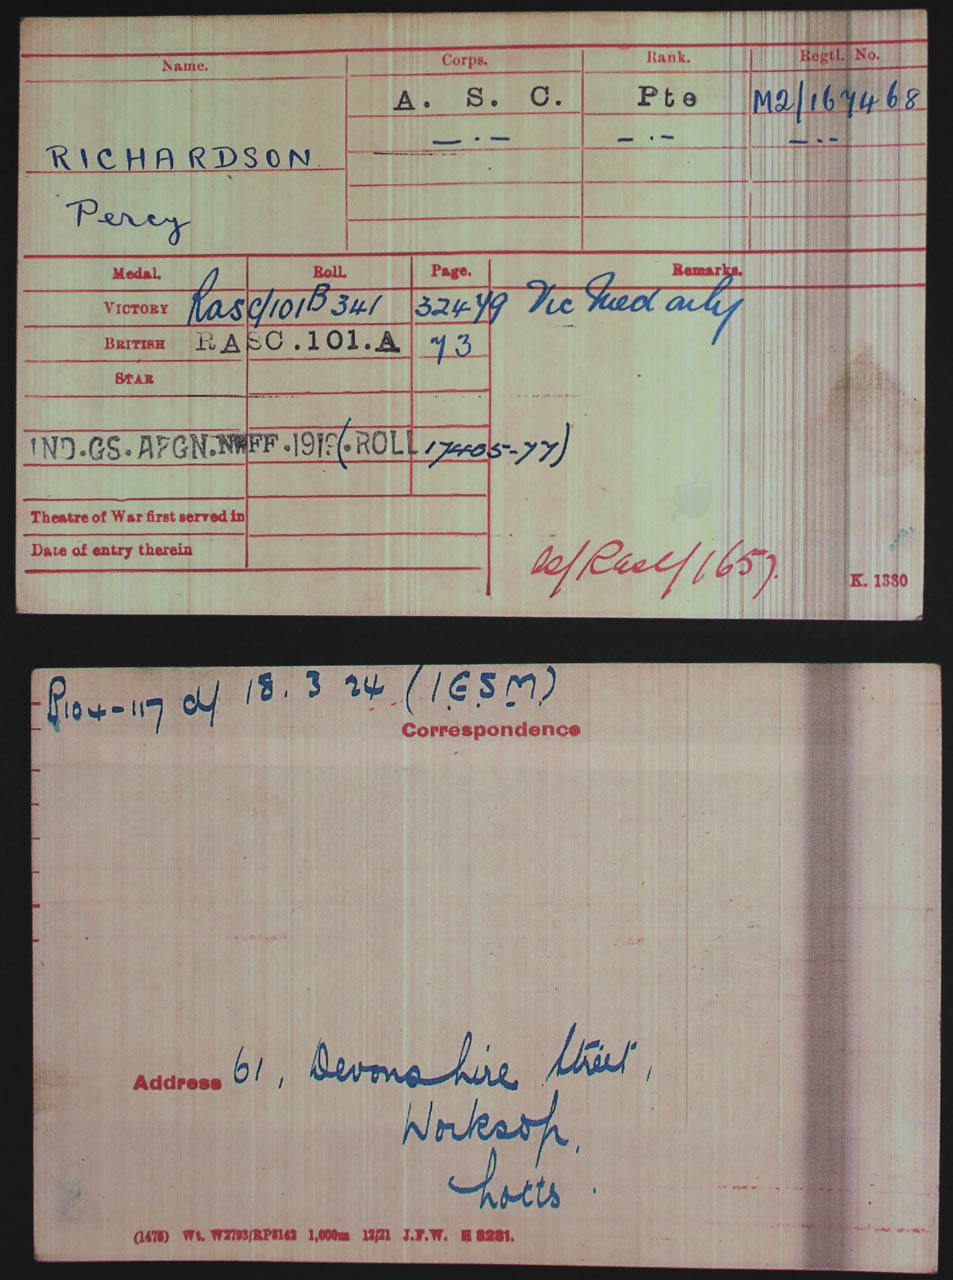 Name. Corps. Rank. Regtl. No.
A. S. C. Pte M2/167468
RICHARDSON — . — — . — — . —
Percy
Medal. Roll. Page. Remarks.
VICTORY RASC/101B341 32479 Vic Medal only
BRITISH RASC.101.A 73
STAR
IND.GS.AFGN.NWFF.1919(.ROLL 17405-77)
Theatre of War first served in
Date of entry therein
K. 1380
P104-117 d/ 18.3 24 (I.G.S.M)
Correspondence
Address 61, Devonshire Street,
Worksop,
Notts.
(1478) Wt. W2793/RP8142 1,000m 12/21 J.F.W. E 8281.